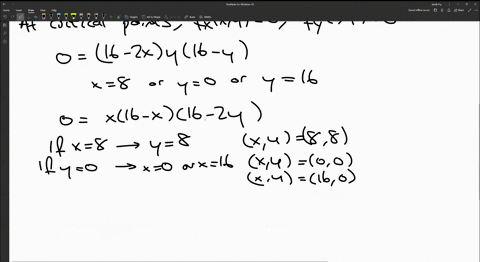 At critical points,
0 = (16-2x)y(16-y)
x=8 or y=0 or y=16
0 = x(16-x)(16-2y)
If x=8 → y=8 (x,y)=(8,8)
If y=0 → x=0 or x=16 (x,y)=(0,0)
(x,y)=(16,0)